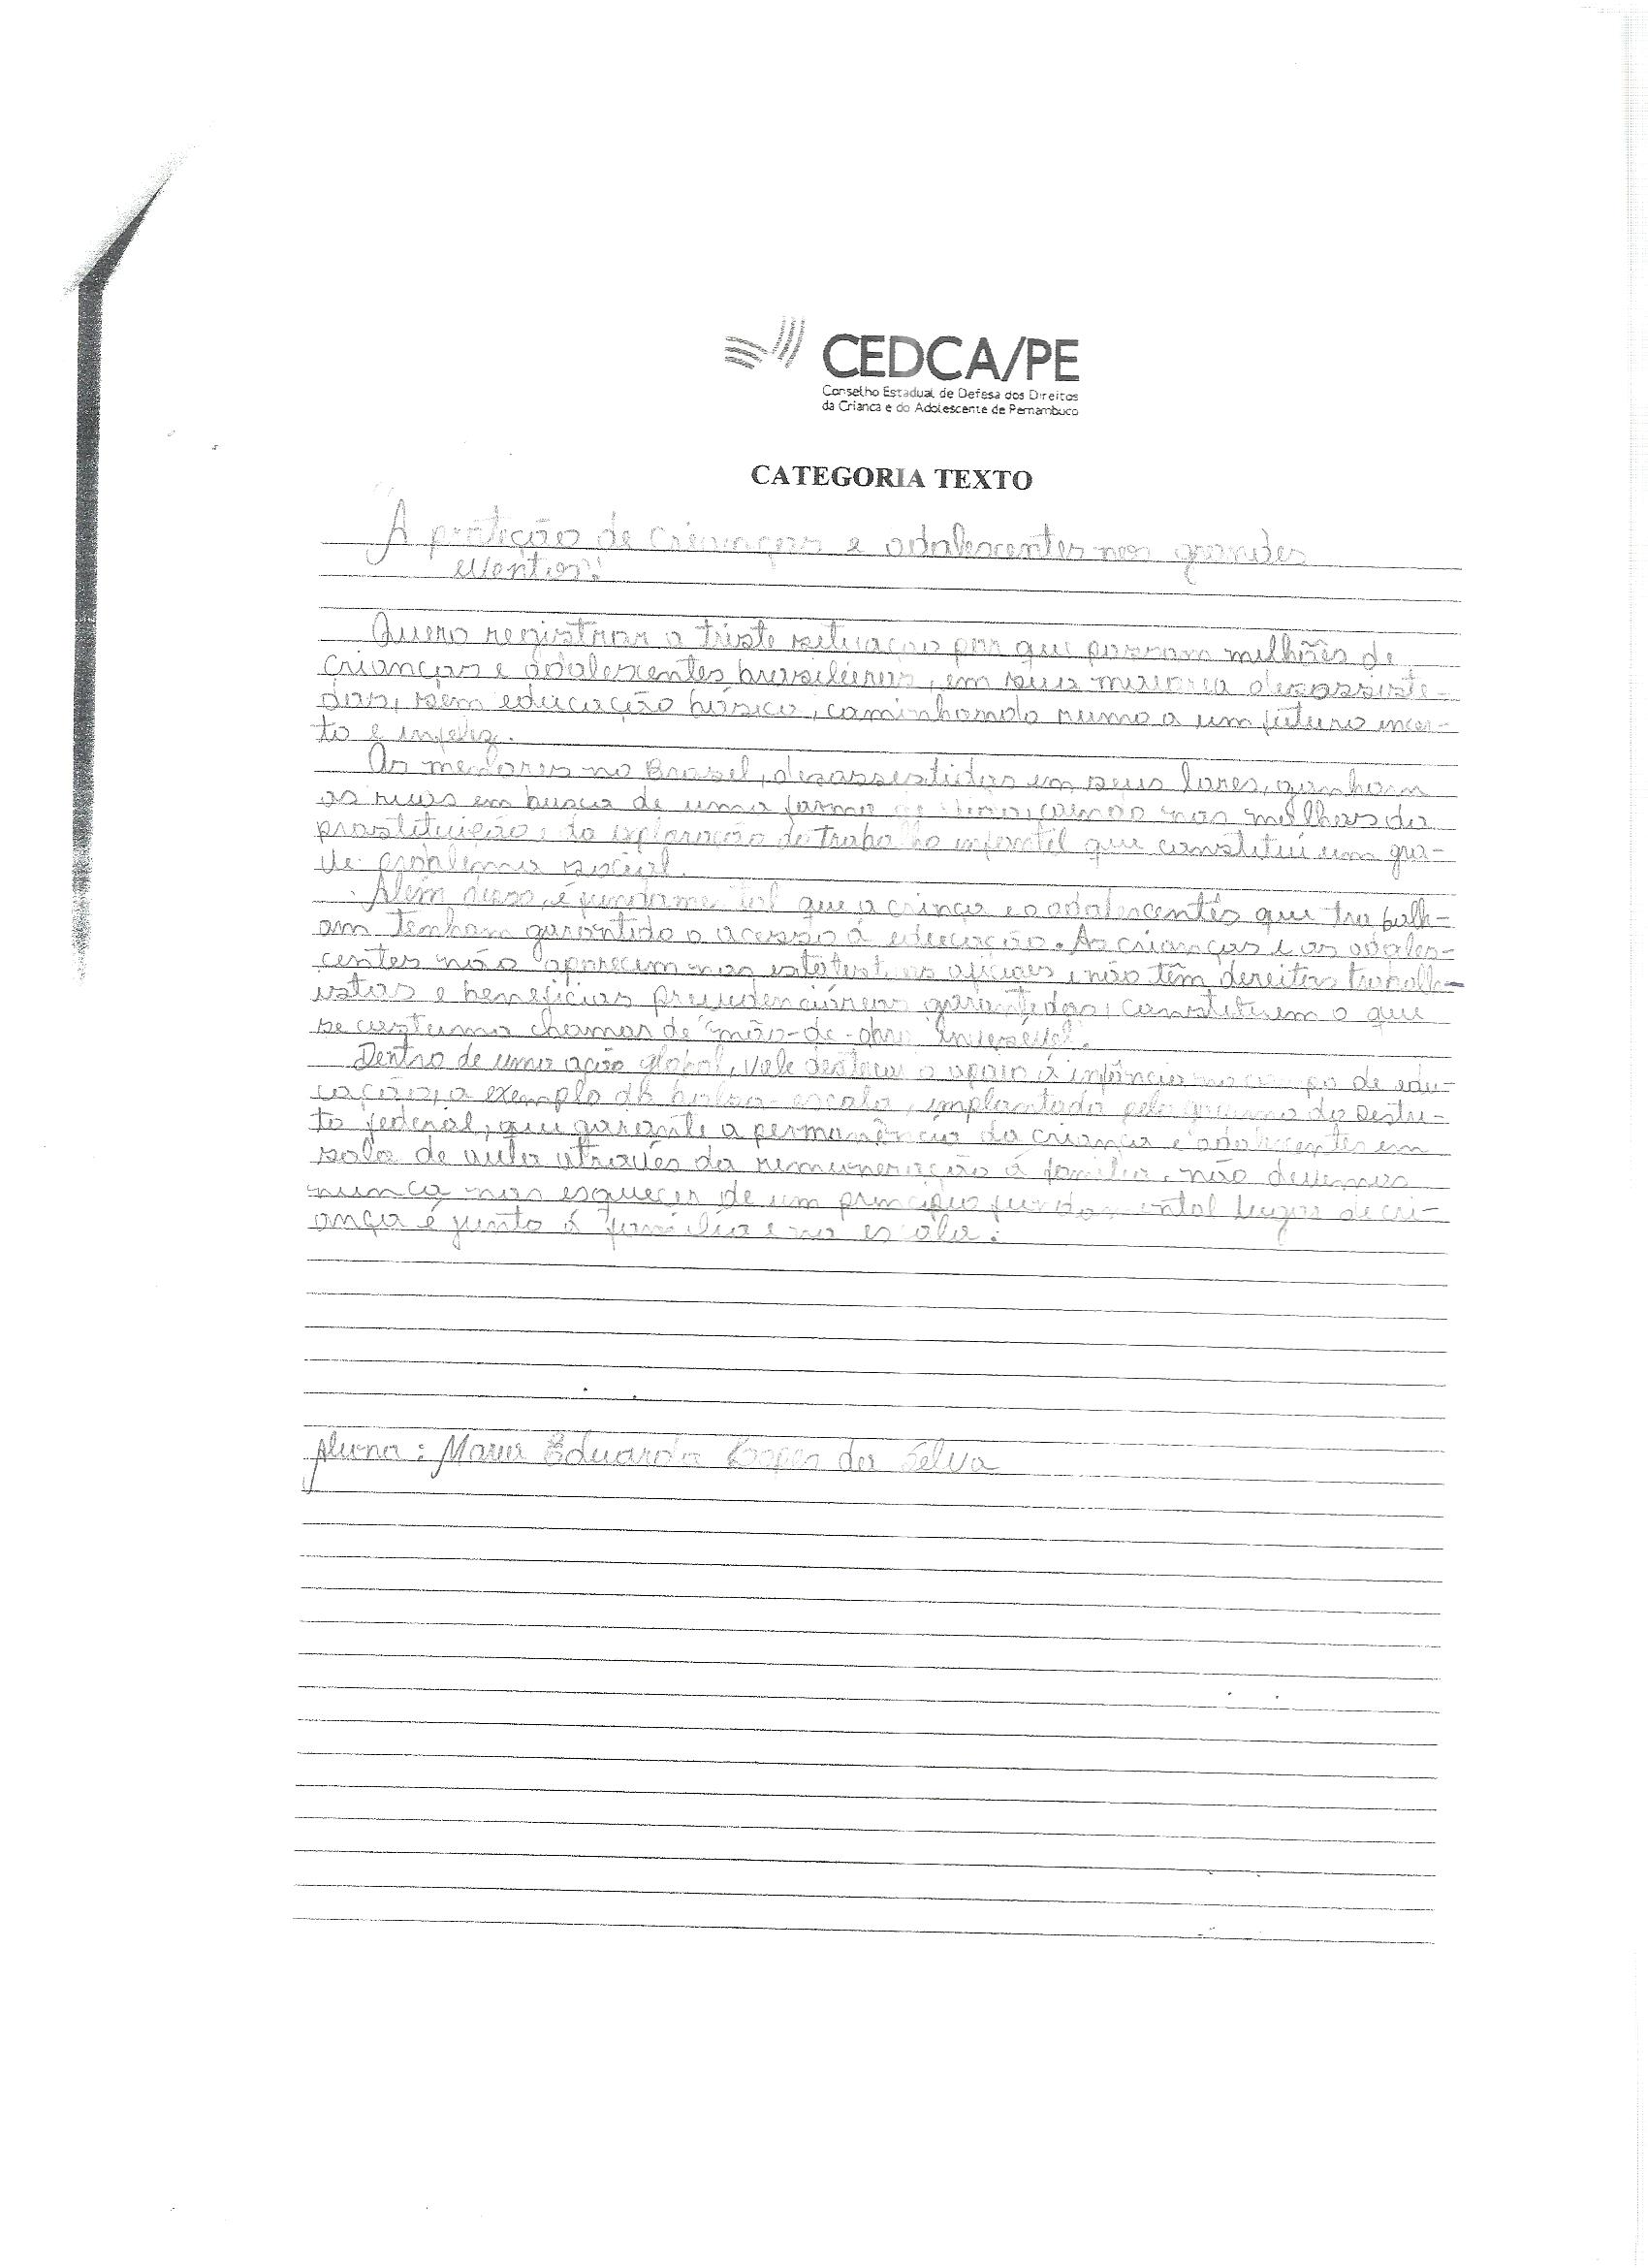 CEDCA/PE
Conselho Estadual de Defesa dos Direitos
da Criança e do Adolescente de Pernambuco
CATEGORIA TEXTO
A proteção de crianças e adolescentes nos grandes
eventos!
Quero registrar a triste situação por que passam milhões de
crianças e adolescentes brasileiros, em sua maioria desassisti-
das, sem educação básica, caminhando rumo a um futuro incer-
to e infeliz.
Os menores no Brasil, desassistidos em seus lares, ganham
as ruas em busca de uma forma de caindo nas malhas da
prostituição e da exploração do trabalho infantil que constitui um gra-
ve problema social.
Além disso, é fundamental que a crinça e o adolescentes que trabalh-
am tenham garantido o acesso à educação. As crianças e os adoles-
centes não aparecem nas estatisticas oficiais e não têm direitos trabalh-
istas e beneficios previdenciários garantidos, constituem o que
se costuma chamar de "mão-de-obra invisível".
Dentro de uma ação global, vale destacar o apoio à infância no campo de edu-
cação, a exemplo da bolsa-escola, implantada pelo governo do Distri-
to federal, que garante a permanência da criança e adolescentes em
sala de aula através da remuneração à família. não devemos
nunca nos esquecer de um principio fundamental lugar de cri-
ança é junto à família e na escola.
Aluna: Maria Eduarda Lopes da Silva